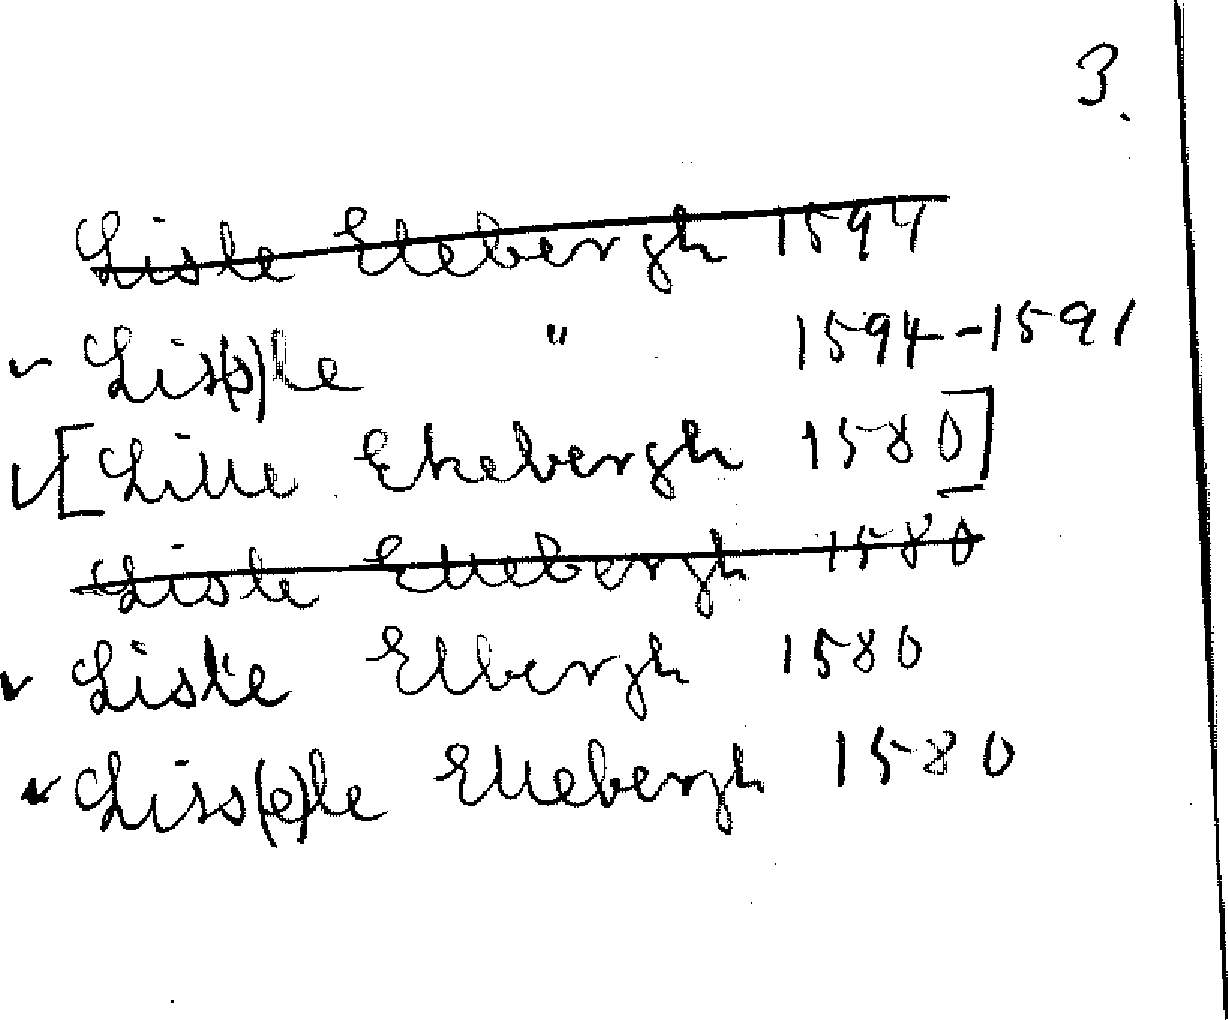 3.
Lisle Ellebergh 1594
Lis(s)le " 1594-1591
[Lille Ekebergh 1580]
Lisle Ellebergh 1580
Lisle Elbergh 1580
Liss(e)le Ellebergh 1580